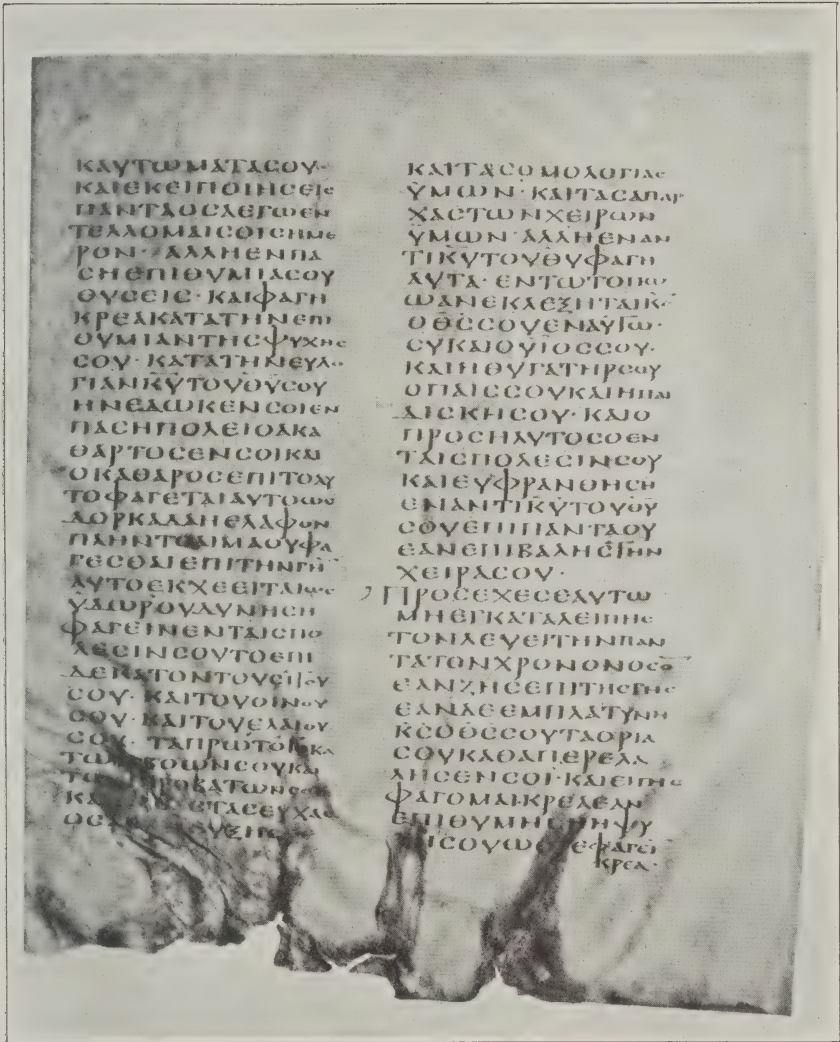 ΚΑΥΤΩΜΑΤΑΣΟΥ·
ΚΑΙΕΚΕΙΠΟΙΗΣΕΙΣ
ΠΑΝΤΑΟΣΑΕΓΩΕΝ
ΤΕΛΛΟΜΑΙΣΟΙΣΗΜΕ
ΡΟΝ· ΑΛΛΗΕΝΠΑ
ΣΗΕΠΙΘΥΜΙΑΣΟΥ
ΘΥΣΕΙΣ· ΚΑΙΦΑΓΗ
ΚΡΕΑΚΑΤΑΤΗΝΕΠΙ
ΘΥΜΙΑΝΤΗΣΨΥΧΗΣ
ΣΟΥ· ΚΑΤΑΤΗΝΕΥΛΟ
ΓΙΑΝΚΥΤΟΥΘΥΣΟΥ
ΗΝΕΔΩΚΕΝΣΟΙΕΝ
ΠΑΣΗΠΟΛΕΙΟΑΚΑ
ΘΑΡΤΟΣΕΝΣΟΙΚΑΙ
ΟΚΑΘΑΡΟΣΕΠΙΤΟΑΥ
ΤΟΦΑΓΕΤΑΙΑΥΤΟΩΣ
ΔΟΡΚΑΔΑΗΕΛΑΦΟΝ
ΠΛΗΝΤΟΑΙΜΑΟΥΦΑ
ΓΕΣΘΑΙΕΠΙΤΗΝΓΗ
ΑΥΤΟΕΚΧΕΕΙΤΑΙΩΣ
ΥΔΩΡΟΥΔΥΝΗΣΗ
ΦΑΓΕΙΝΕΝΤΑΙΣΠΟ
ΛΕΣΙΝΣΟΥΤΟΕΠΙ
ΔΕΚΑΤΟΝΤΟΥΣΙΤΟΥ
ΣΟΥ· ΚΑΙΤΟΥΟΙΝΟΥ
ΣΟΥ· ΚΑΙΤΟΥΕΛΑΙΟΥ
ΣΟΥ· ΤΑΠΡΩΤΟΤΟΚΑ
ΤΩΝΒΟΩΝΣΟΥΚΑΙ
ΠΡΟΒΑΤΩΝΣΟΥ
ΕΥΧΑΣ
ΚΑΙΤΑΣΟΜΟΛΟΓΙΑΣ
ΥΜΩΝ· ΚΑΙΤΑΣΑΠΑΡ
ΧΑΣΤΩΝΧΕΙΡΩΝ
ΥΜΩΝ· ΑΛΛΗΕΝΑΝ
ΤΙΚΥΤΟΥΘΥΦΑΓΗ
ΑΥΤΑ· ΕΝΤΩΤΟΠΩ
ΩΑΝΕΚΛΕΞΗΤΑΙΚΣ
ΟΘΣΣΟΥΕΝΑΥΤΩ·
ΣΥΚΑΙΟΥΙΟΣΣΟΥ·
ΚΑΙΗΘΥΓΑΤΗΡΣΟΥ
ΟΠΑΙΣΣΟΥΚΑΙΗΠΑΙ
ΔΙΣΚΗΣΟΥ· ΚΑΙΟ
ΠΡΟΣΗΛΥΤΟΣΟΕΝ
ΤΑΙΣΠΟΛΕΣΙΝΣΟΥ
ΚΑΙΕΥΦΡΑΝΘΗΣΗ
ΕΝΑΝΤΙΚΥΤΟΥΘΥ
ΣΟΥΕΠΙΠΑΝΤΑΟΥ
ΕΑΝΕΠΙΒΑΛΗΣΤΗΝ
ΧΕΙΡΑΣΟΥ·
ΠΡΟΣΕΧΕΣΕΑΥΤΩ
ΜΗΕΓΚΑΤΑΛΕΙΠΗΣ
ΤΟΝΛΕΥΕΙΤΗΝΠΑΝ
ΤΑΤΟΝΧΡΟΝΟΝΟΣΟ
ΕΑΝΖΗΣΕΠΙΤΗΣΓΗΣ
ΕΑΝΔΕΕΜΠΛΑΤΥΝΗ
ΚΣΟΘΣΣΟΥΤΑΟΡΙΑ
ΣΟΥΚΑΘΑΠΕΡΕΛΑ
ΛΗΣΕΝΣΟΙ· ΚΑΙΕΙΠΗΣ
ΦΑΓΟΜΑΙΚΡΕΑΕΑΝ
ΕΠΙΘΥΜΗΣΗΗΨΥ
ΚΡΕΑ·